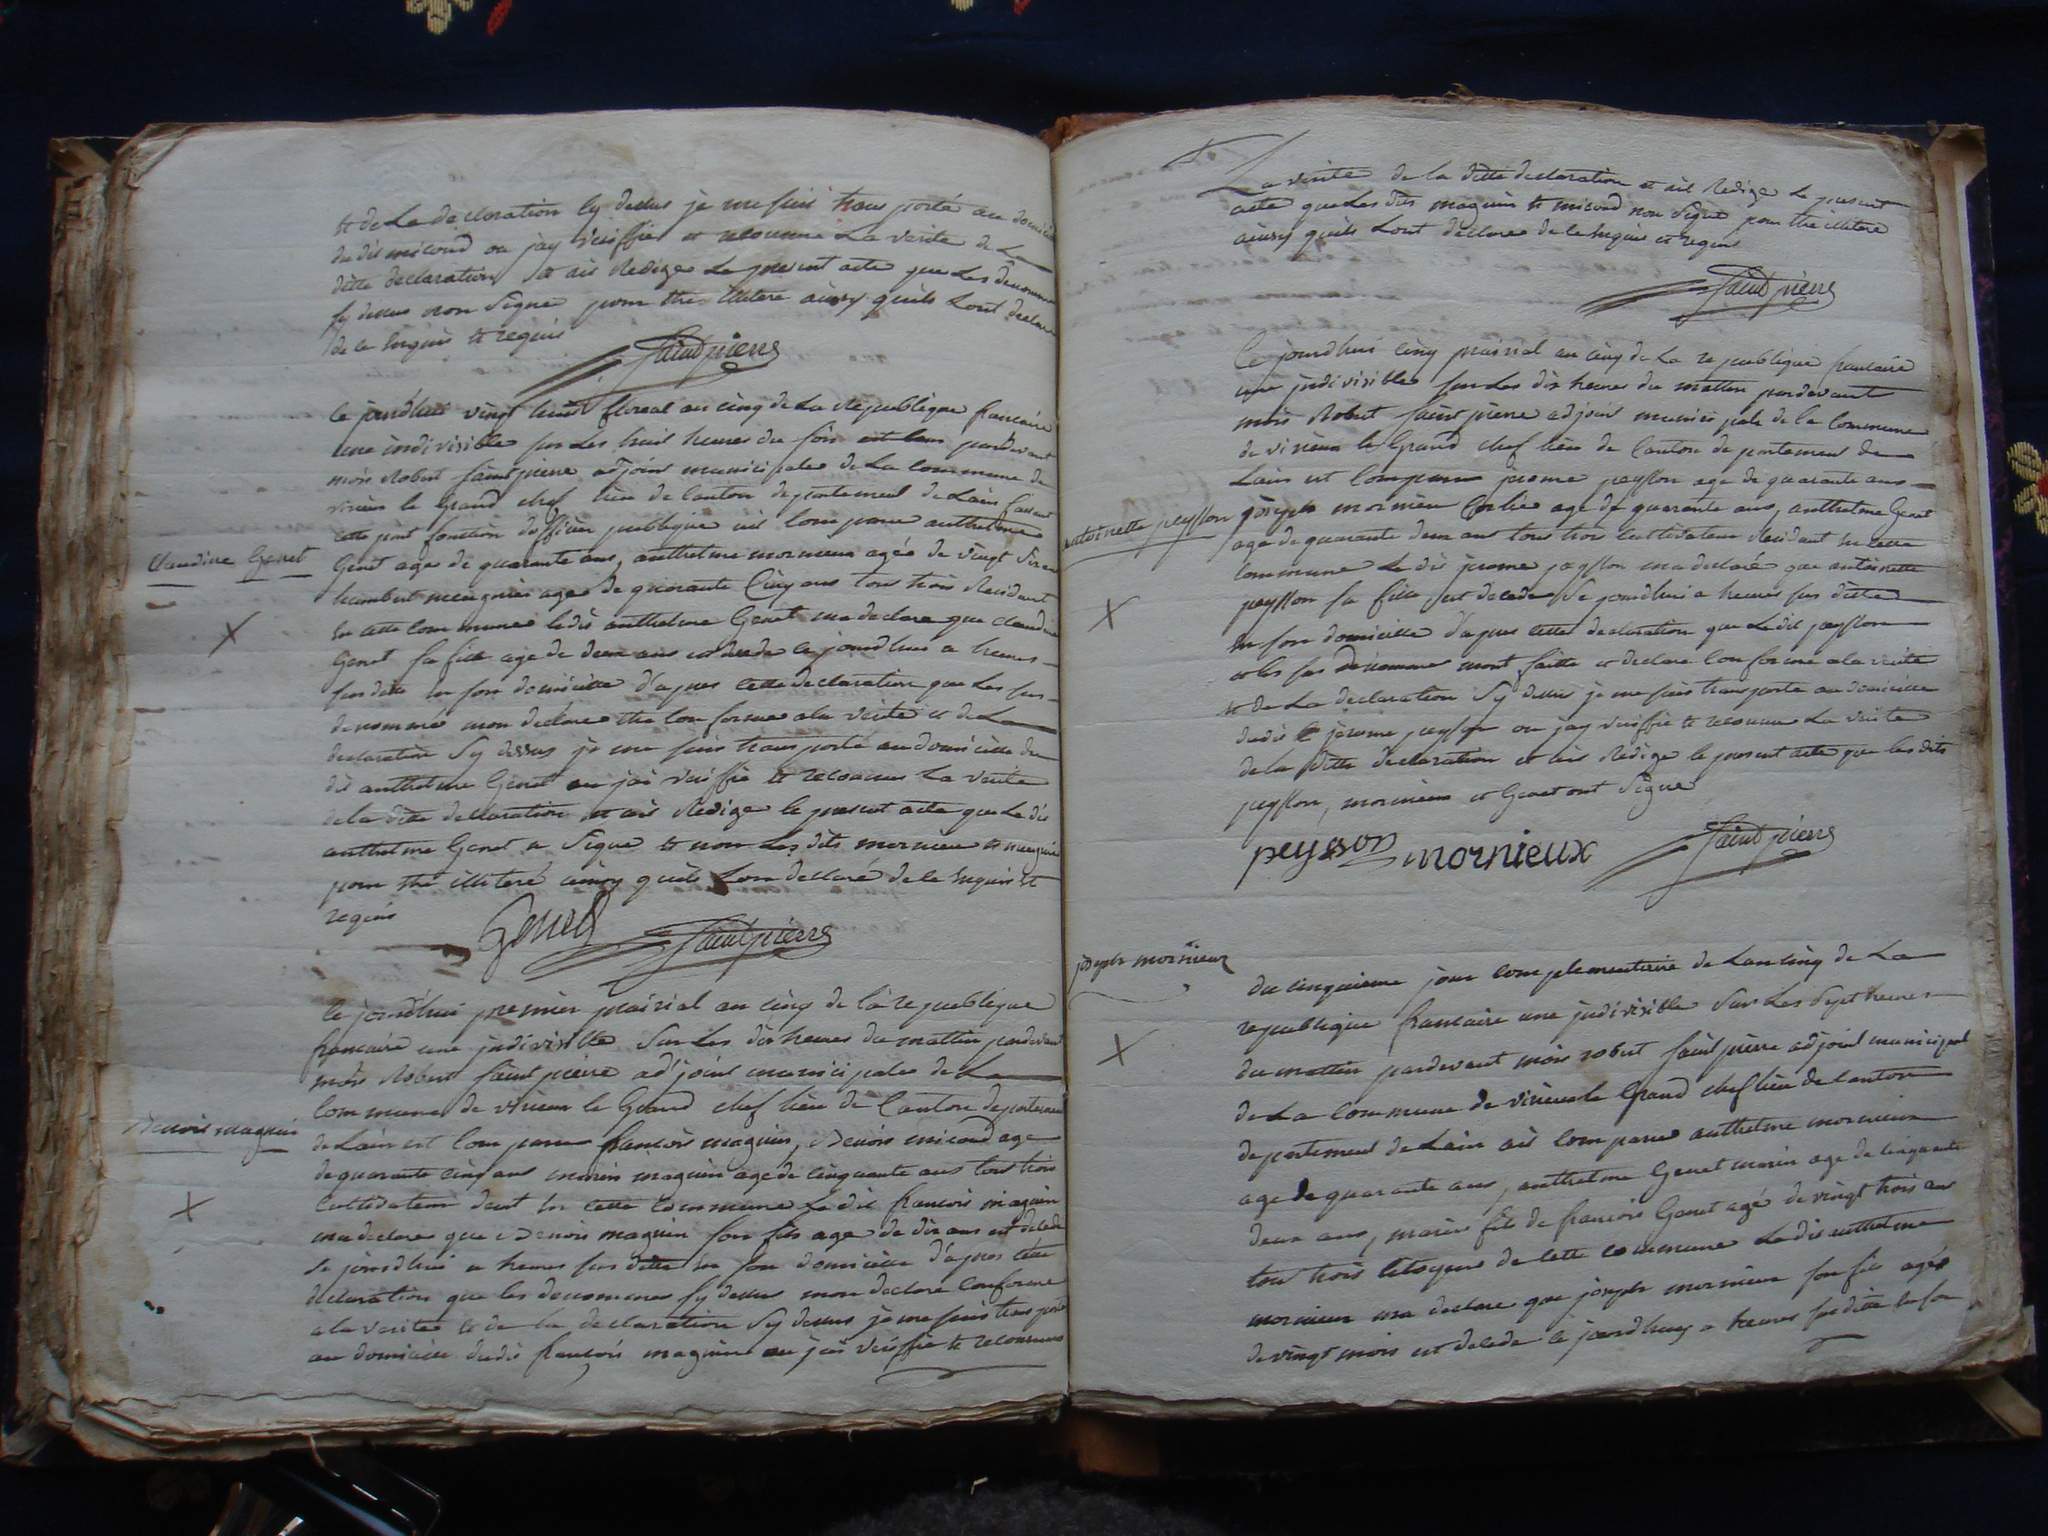 et de La declaration Cy dessus je me suis trans porté au domicile
du dit micoud ou jay veriffie et reconnu La verite de La
ditte declaration et ais Redige Le present acte que Les denommes
sy dessus non Signe pour thre illitere ainsy quils Lont declare
de le enquis et requis
Saint pierre
Ce jourdhui vingt huit floreal an cinq de La Republique francaise
une indivisible sur Les huit heures du soir est Com pardevant
mois Robert saint pierre adjoint municipales de La Commune de
virieu le Grand chef lieu de Canton departement de Lain faisant
cette part fonction dofficier publique ait Com paru anthelme
Claudine Genet
Genet age de quarante ans, anthelme mornieux agée de vingt six ans
humbert age de quarante Cinq ans tous trois Residant
en cette Commune ledit anthelme Genet ma declare que claudine
Genet sa fille age de deux ans est decede ce jourdhui a heures
sus ditte en son domicille d'apres cette declaration que Les sus
denommé mon declare thre Con forme a la verite et de La
declaration Sy dessus je me suis trans porté au domicille du
dit anthelme Genet ou jai veriffie et reconnu La verite
de la ditte declaration et ais Redige le present acte que Le dit
anthelme Genet a Signe et non Les dits mornieu et
pour thre illiteré ainsy quils Lon declaré de le enquis et
requis
Genet Saint pierre
Ce jourdhui premier prairial an cinq de la republique
francaise une jndivisible Sur Les dix heures du mattin pardevant
mois Robert saint pierre adjoint municipales de La
Commune de virieu le Grand chef lieu de Canton departement
Benois maguin
de Lain est Com paru francois maguin, Benois micoud age
de quarante cinq ans marin maguin age de cinquante ans tous trois
Cultivateur dans en cette Commune Le dit francois maguin
ma declare que Benois maguin son fils age de dix ans est decede
Se jourdhui a heures sus ditte en son domicille d'apres cette
declaration que les denommes sy dessus mon declare Conforme
a la verite et de la declaration Sy dessus je me suis trans porté
au domicille dudit francois maguin ou jai veriffie et reconnu
La verite de la ditte declaration et ait Redige Le present
acte que Les dits maguin et micoud non Signe pour thre illitere
ainsy quils Lont declare de le enquis et requis
Saint pierre
Ce jourdhui cinq prairial an cinq de La republique francaise
une jndivisible sur Les dix heures du mattin pardevant
mois Robert saint pierre adjoint municipale de la Commune
de virieux le Grand chef lieu de Canton departement de
Lain est Comparu jerome peysson age de quarante ans
antoinette peysson
joseph mornieu age de quarante ans, anthelme Genet
age de quarante deux ans tous trois Cultivateur Residant en cette
Commune Le dit jerome peysson ma declaré que antoinette
peysson sa fille est decede Se jourdhui a heures sus ditte
en son domicille d'apres cette declaration que Le dit peysson
et les sus denomme mont faitte et declare Conforme a la verite
et de La declaration Sy dessus je me suis transporte au domicille
dudit jerome peysson ou jay veriffie et reconnu La verite
de la ditte declaration et ais Redige le present acte que les dits
peysson, mornieux et Genet ont Signe
peysson mornieux Saint pierre
joseph mornieux
du cinquieme jour complementaire de Lan cinq de La
republique francaise une jndivisible Sur Les Sept heures
du mattin pardevant mois robert saint pierre adjoint municipal
de La Commune de virieu le Grand chef lieu de Canton
departement de Lain ait Comparu anthelme mornieux
age de quarante ans, anthelme Genet marin age de cinquante
deux ans, marin fils de francois Genet agé de vingt trois ans
tous trois Citoyens de Cette Commune Le dit anthelme
mornieux ma declare que joseph mornieux son fils agée
de vingt mois est decede ce jourdhuy a heures sus ditte en son